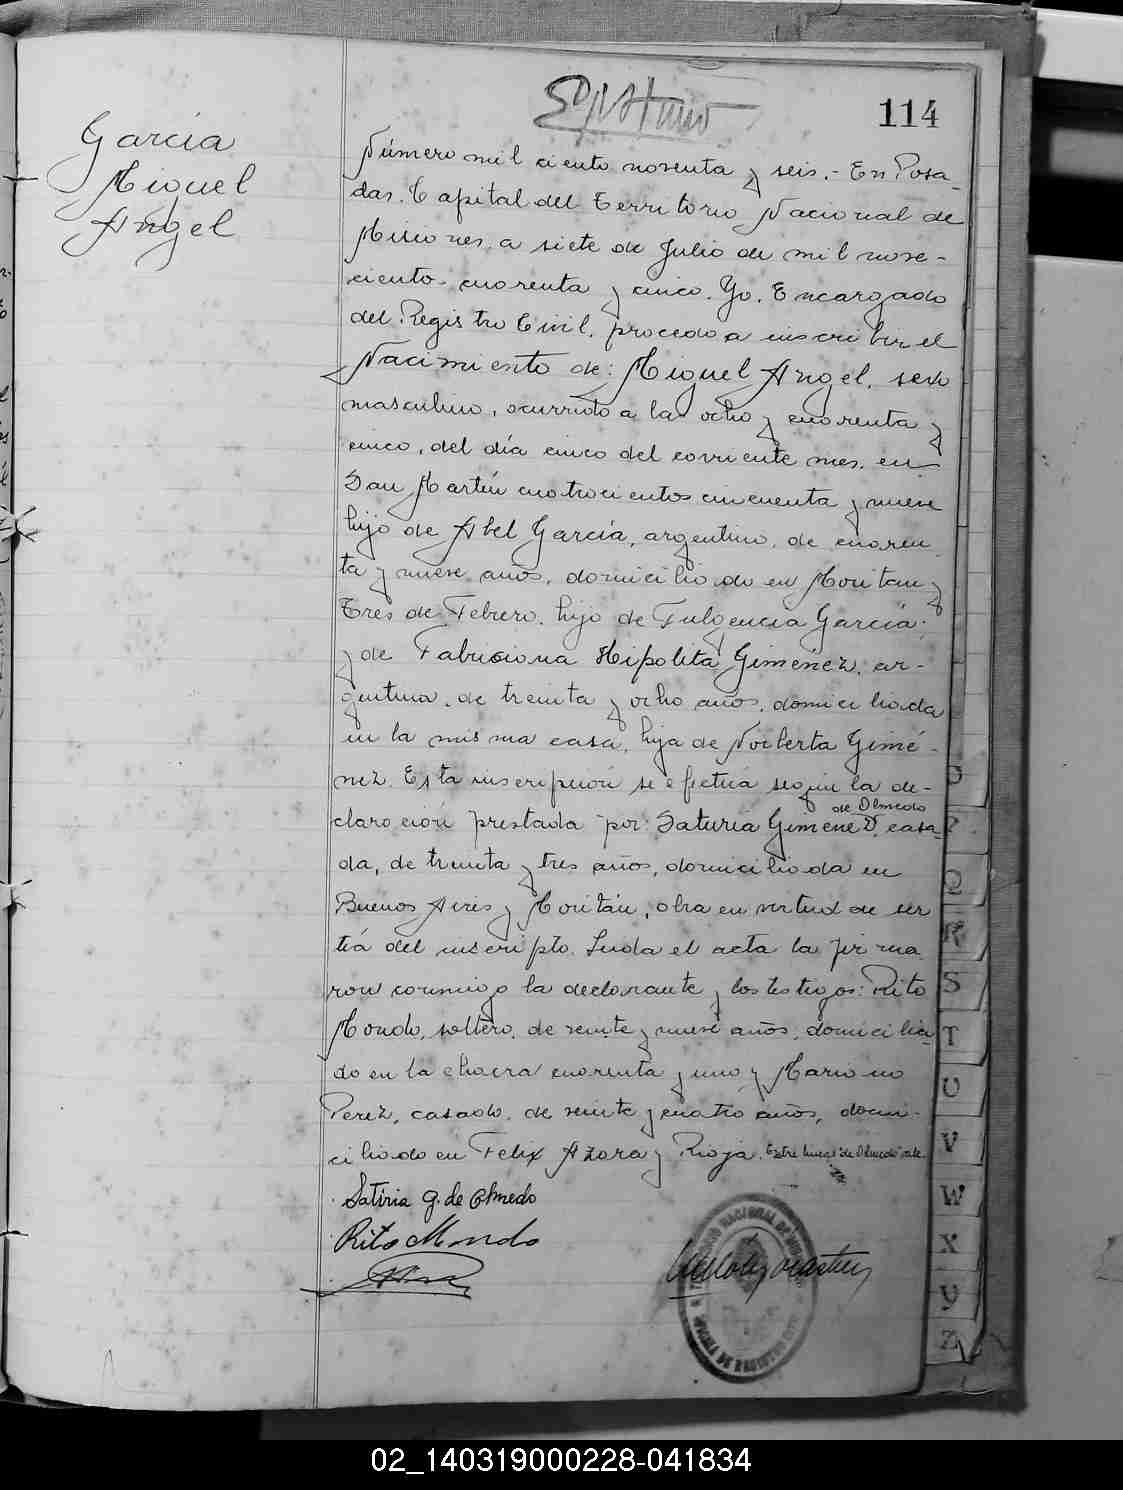 114
García
Miguel
Angel
Número mil ciento noventa y seis.- En Posa-
das. Capital del Territorio Nacional de
Misiones, a siete de Julio de mil nove-
cientos cuarenta y cinco. Yo. Encargado
del Registro Civil, procedo a inscribir el
Nacimiento de: Miguel Angel, sexo
masculino, ocurrido a las ocho y cuarenta y
cinco, del día cinco del corriente mes, en
San Martín cuatrocientos cincuenta y nueve
hijo de Abel García, argentino, de cuaren
ta y nueve años, domiciliado en Moritan y
Tres de Febrero, hijo de Fulgencia García;
y de Fabriciona Hipolita Giménez, ar-
gentina, de treinta y ocho años, domiciliada
en la misma casa, hija de Norberta Gimé-
nez. Esta inscripción se efectúa según la de-
de Olmedo
claración prestada por: Saturia Gimenez, casa-
da, de treinta y tres años, domiciliada en
Buenos Aires y Moritán, obra en virtud de ser
tía del inscripto. Leída el acta la firma
ron conmigo la declarante y los testigos: Rito
Mondo, soltero, de veinte y nueve años, domicilia-
do en la chacra cuarenta y uno y Mariano
Perez, casado, de veinte y cuatro años, domi-
ciliado en Felix Azara y Rioja. Entre lineas "de Olmedo" vale.
Satiria G. de Olmedo
Rito Mondo
OFICINA DE REGISTRO CIVIL
P
Q
R
S
T
U
V
W
X
Y
Z
02_140319000228-041834